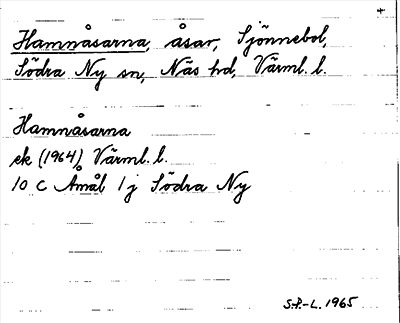 +
Hamnåsarna, åsar, Sjönnebol,
Södra Ny sn, Näs hd, Värml. l.
Hamnåsarna
ek (1964) Värml. l.
10 C Åmål 1 j Södra Ny
S.P.-L. 1965